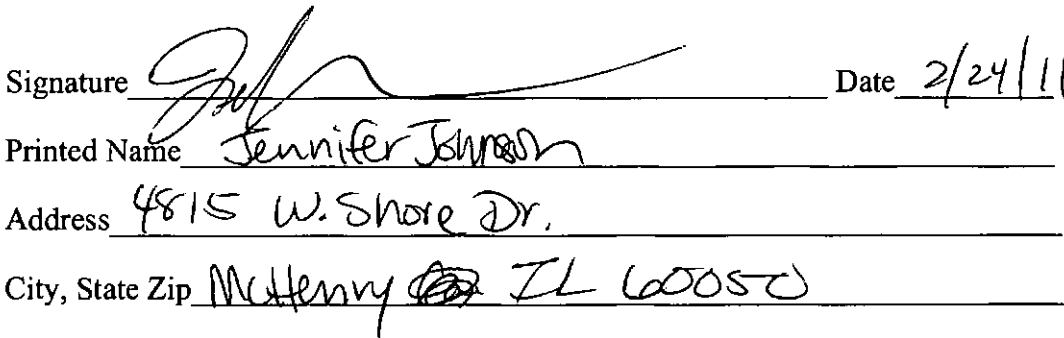 Signature Date 2/24/11
Printed Name Jennifer Johnson
Address 4815 W. Shore Dr.
City, State Zip McHenry IL 60050